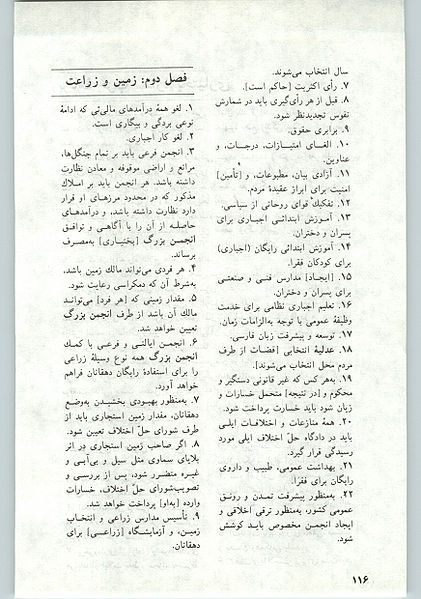 سال انتخاب می‌شوند.
۷. رأی اکثریت [حاکم است].
۸. قبل از هر رأی‌گیری باید در شمارش
نفوس تجدیدنظر شود.
۹. برابری حقوق.
۱۰. الغـای امتیـازات، درجـات، و
عناوین.
۱۱. آزادی بیان، مطبوعات، و [تأمین]
امنیت برای ابراز عقیدهٔ مردم.
۱۲. تفکیک قوای روحانی از سیاسی.
۱۳. آمـوزش ابتدائـی اجبـاری برای
پسران و دختران.
۱۴. آموزش ابتدائی رایگان (اجباری)
برای کودکان فقرا.
۱۵. [ایجـاد] مدارس فنـی و صنعتـی
برای پسران و دختران.
۱۶. تعلیم اجباری نظامی برای خدمت
وظیفهٔ عمومی با توجه به‌الزامات زمان.
۱۷. توسعه و پیشرفت زبان فارسی.
۱۸. عدلیهٔ انتخابی [قضـات از طرف
مردم محل انتخاب می‌شوند].
۱۹. به‌هر کس که غیر قانونی دستگیر و
محکوم و [در نتیجه] متحمل خسارات و
زیان شود باید خسارت پرداخت شود.
۲۰. همهٔ منازعات و اختلافـات ایلـی
باید در دادگاه حلّ اختلاف ایلی مورد
رسیدگی قرار گیرد.
۲۱. بهداشت عمومی، طبیب و داروی
رایگان برای فقرا.
۲۲. به‌منظور پیشرفت تمـدن و رونـق
عمومی کشور، به‌منظور ترقی اخلاقـی و
ایجاد انجمـن مخصوص بایـد کوشش
شود.
فصل دوم: زمین و زراعت
۱. لغو همهٔ درآمدهای مالی‌ئی که ادامهٔ
نوعی بردگی و بیگاری است.
۲. لغو کار اجباری.
۳. انجمن فرعی باید بر تمام جنگل‌ها،
مراتع و اراضی موقوفه و معادن نظارت
داشته باشد. هر انجمن باید بر املاك
مذکور که در محدود مرزهای او قرار
دارد نظارت داشته باشد، و درآمدهـای
حاصلـه از آن را بـا آگاهـی و توافـق
انجمـن بزرگ [بختیـاری] به‌مصـرف
برساند.
۴. هر فردی می‌تواند مالك زمین باشد،
به‌شرط آن که دمکراسی رعایت شود.
۵. مقدار زمینی که [هر فرد] می‌توانـد
مالك آن باشد از طرف انجمن بزرگ
تعیین خواهد شد.
۶. انجمـن ایالتـی و فرعـی با کمـك
انجمن بزرگ همه نوع وسیلهٔ زراعی
را برای استفادهٔ رایگان دهقانان فراهم
خواهد آورد.
۷. به‌منظور بهبـودی بخشیـدن به‌وضع
دهقانان، مقدار زمین استجاری باید از
طرف شورای حلّ اختلاف تعیین شود.
۸. اگر صاحب زمین استجاری در اثر
بلایای سماوی مثل سیل و بی‌آبـی و
غیـره متضـرر شود، پس از بررسـی و
تصویب‌شورای حلّ اختلاف، خسارات
وارده [به‌او] پرداخت خواهد شد.
۹. تأسیس مدارس زراعی و انتخـاب
زمیـن، و آزمایشـگاه [زراعـی] برای
دهقانان.
۱۱۶